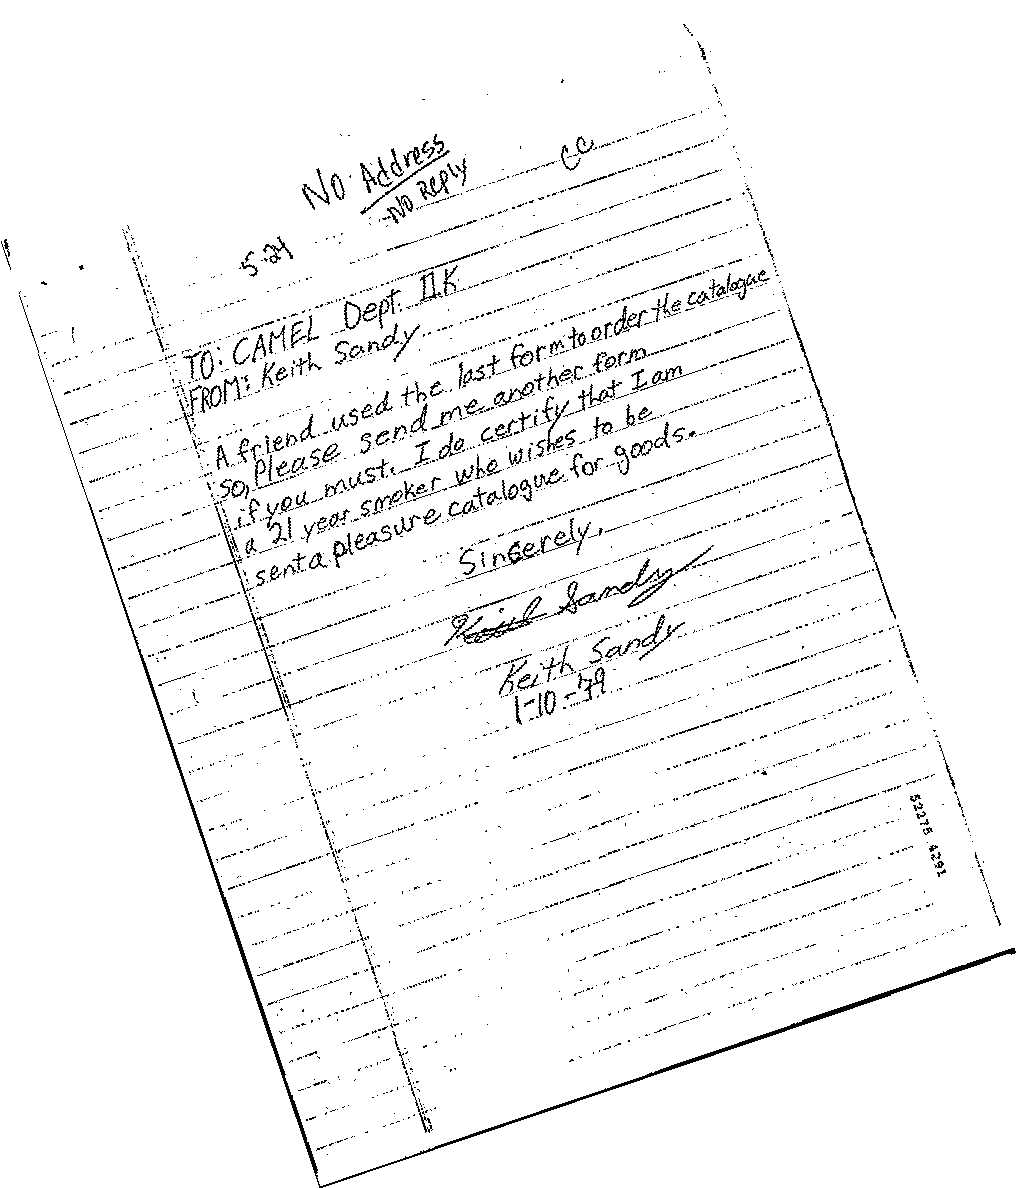 No Address
-No Reply
CC
5-24
TO: CAMEL Dept. IIK
FROM: Keith Sandy
A friend used the last form to order the catalogue
so, Please send me another form
if you must. I do certify that I am
a 21 year smoker who wishes to be
sent a pleasure catalogue for goods.
Sincerely,
Keith Sandy
Keith Sandy
1-10-79
52275 4291